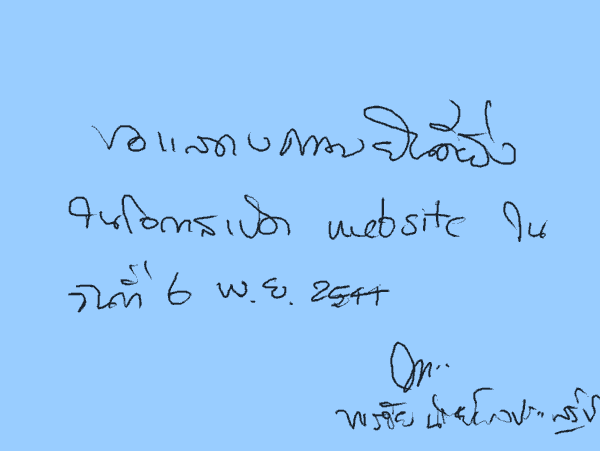 ขอแสดงความยินดียิ่ง
ในโอกาสเปิด website ใน
วันที่ 6 พ.ย. 2544